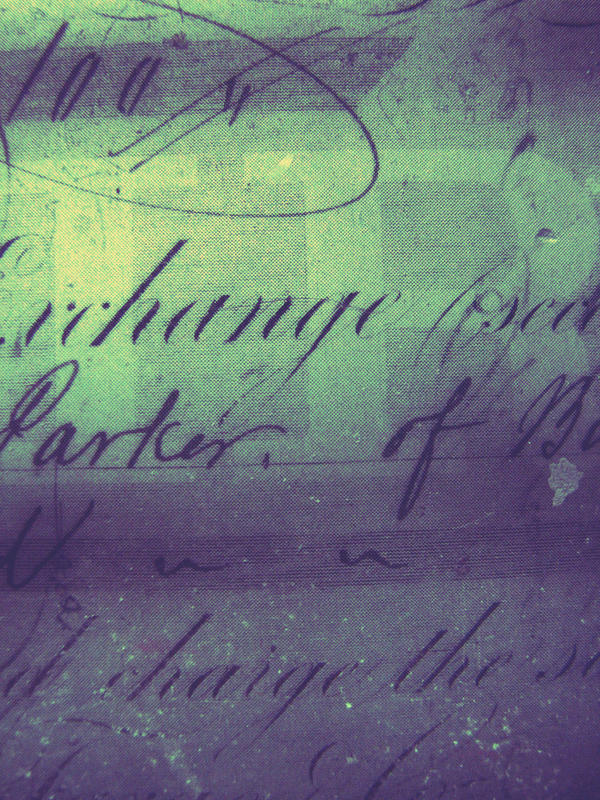 100
Exchange (sec
Parker, of Bo
" "
d charge the s